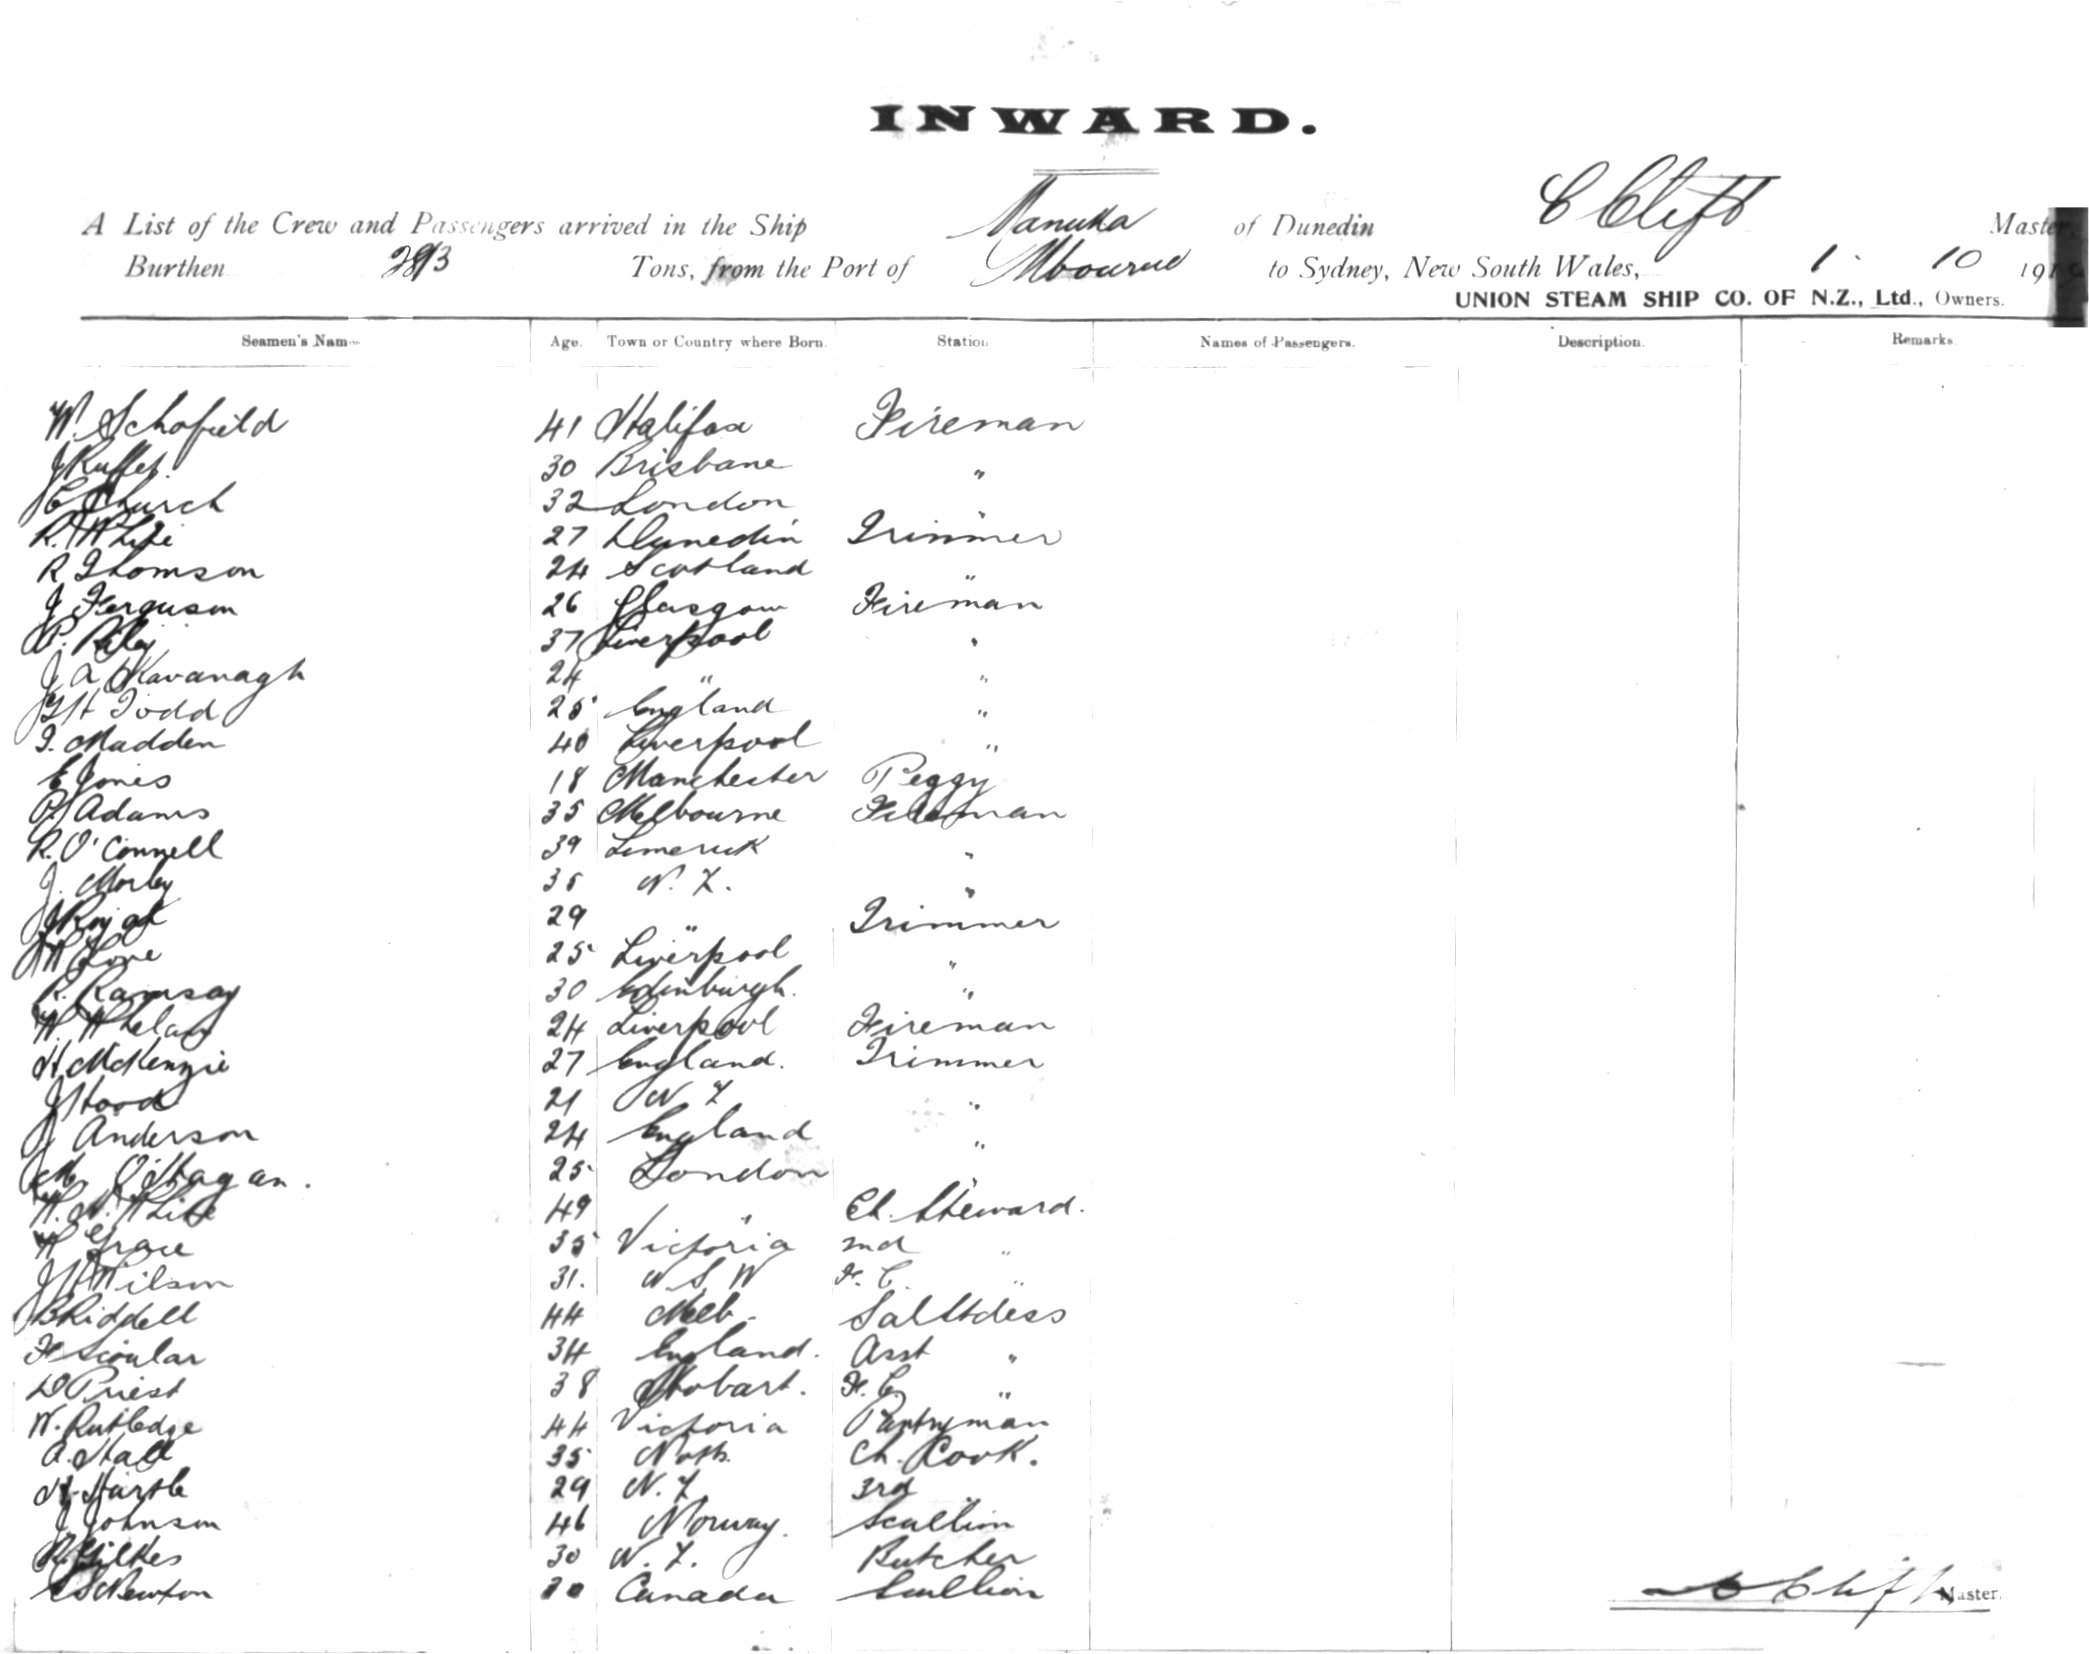 INWARD.
A List of the Crew and Passengers arrived in the Ship Manuka of Dunedin C Clift Master,
Burthen Tons, from the Port of Mbourne to Sydney, New South Wales, 1 · 10 191
UNION STEAM SHIP CO. OF N.Z., Ltd., Owners.
Seamen's Names Age. Town or Country where Born. Station Names of Passengers. Description. Remarks.
W. Schofield 41 Halifax Fireman
J 30 Brisbane "
C Church 32 London "
R. White 27 Dunedin Trimmer
R Thomson 24 Scotland "
J Ferguson 26 Glasgow Fireman
P. Riley 37 Liverpool "
J A Kavanagh 24 " "
H Todd 25 England "
T. Madden 40 Liverpool "
E Jones 18 Manchester Peggy
P Adams 35 Melbourne Fireman
R. O'Connell 39 Limerick "
J. Morley 35 N.Z. "
J 29 " Trimmer
W Love 25 Liverpool "
R. Ramsay 30 Edinburgh. "
W. Whelan 24 Liverpool Fireman
H. McKenzie 27 England. Trimmer
J Hood 21 N Z "
J Anderson 24 England "
M O'Hagan. 25 London "
W. White 49 " Ch. Steward.
W Grace 35 Victoria 2nd "
J Wilson 31. N S W F. C. "
B Riddell 44 Melb. Sal Stdess
F Scoular 34 England. Asst "
D Priest 38 Hobart. F. C. "
W. Rutledge 44 Victoria Pantryman
A. Hall 35 Notts. Ch. Cook.
H. Hirstle 29 N.Z. 3rd
J Johnson 46 Norway. Scullion
R. Gilkes 30 N.Z. Butcher
S Newton Canada Scullion
C Clift Master.